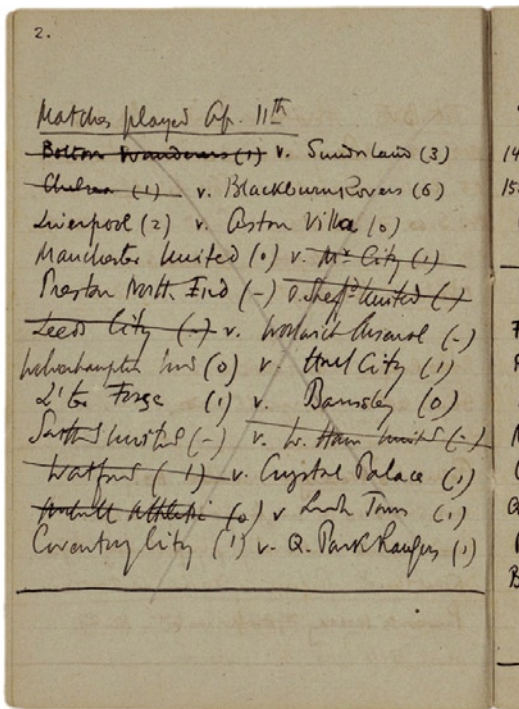 2.
Matches played Ap. 11th
Bolton Wanderers (1) v. Sunderland (3)
Chelsea (1) v. Blackburn Rovers (6)
Liverpool (2) v. Aston Villa (0)
Manchester United (0) v. Mr City (1)
Preston North End (-) v. Sheffd United (-)
Leeds City (-) v. Woolwich Arsenal (-)
Wolverhampton (0) v. Hull City (1)
L'ter Fosse (1) v. Barnsley (0)
United (-) v. W. Ham United (-)
Watford (1) v. Crystal Palace (1)
Athletic (0) v Luton Town (1)
Coventry City (1) v. Q. Park Rangers (1)